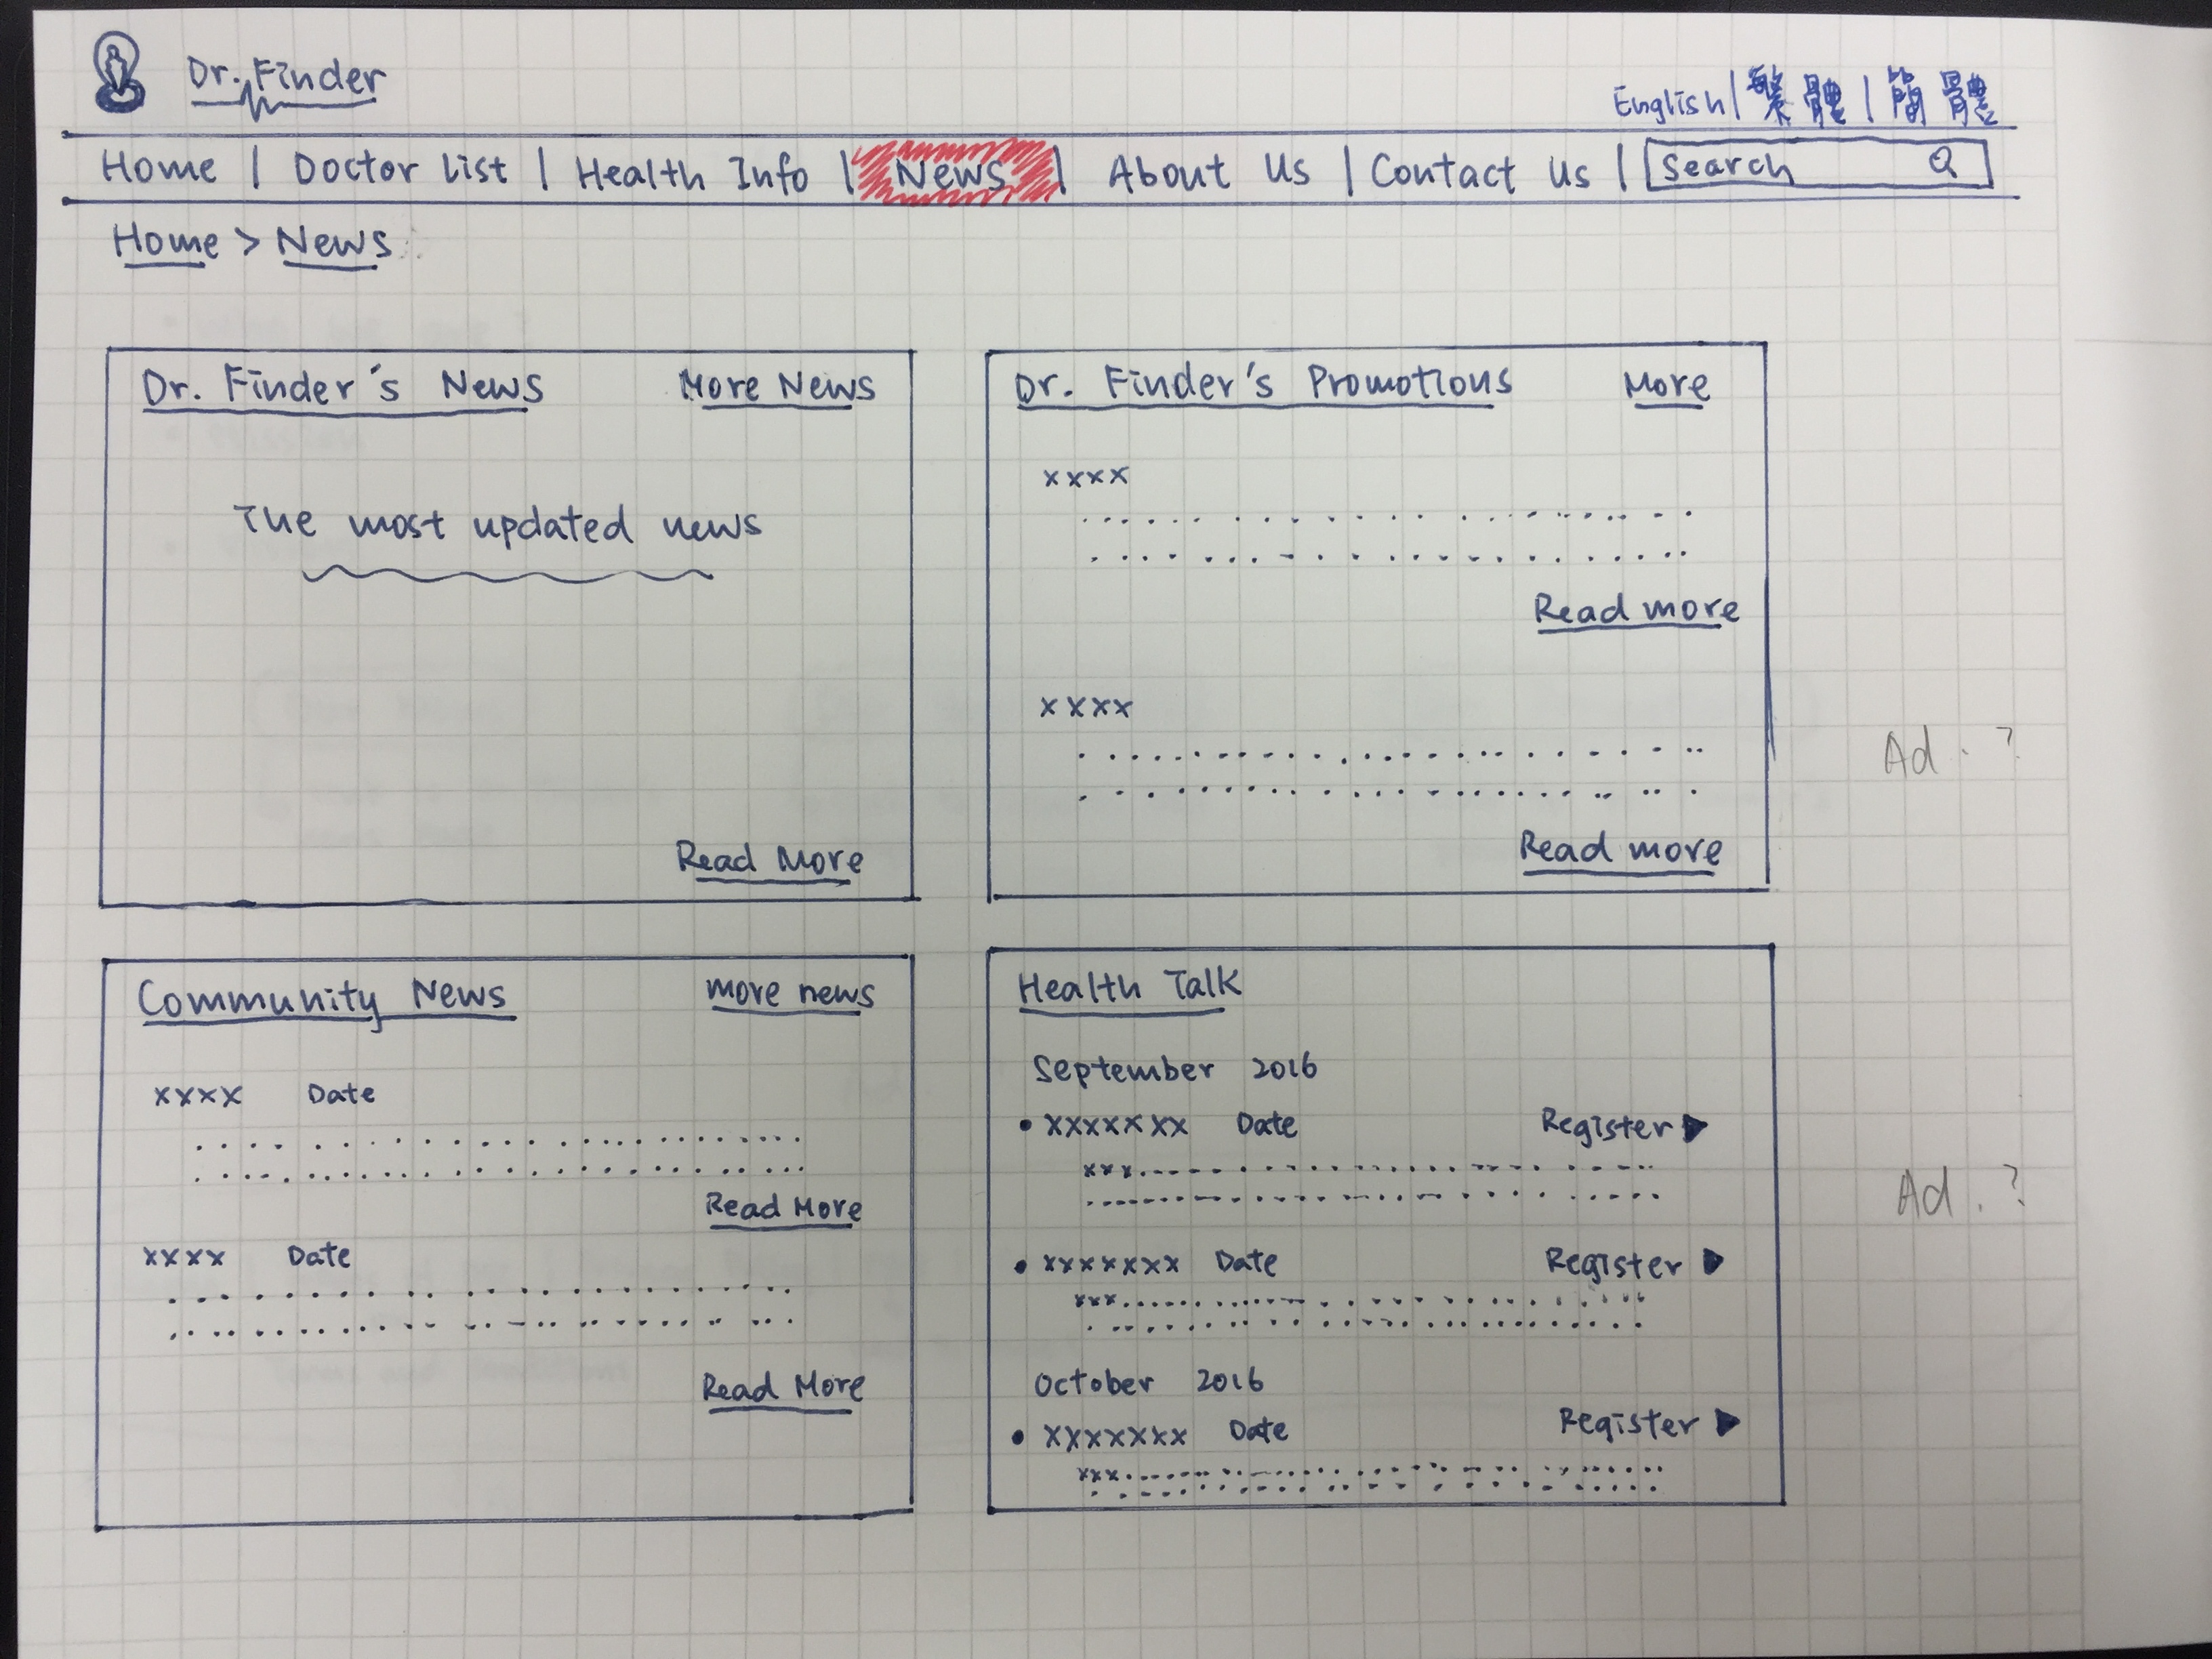 Dr. Finder
English | 繁體 |簡體
Home | Doctor List | Health Info | News | About Us | Contact Us | Search
Home > News
Dr. Finder's News More News
The most updated news
Read More
Dr. Finder's Promotions More
xxxx
Read more
xxxx
Read more
Ad. ?
Community News more news
xxxx Date
Read More
xxxx Date
Read More
Health Talk
September 2016
• xxxxxxx Date Register ▶
xxx
• xxxxxxx Date Register ▶
xxx
October 2016
• xxxxxxx Date Register ▶
xxx
Ad. ?